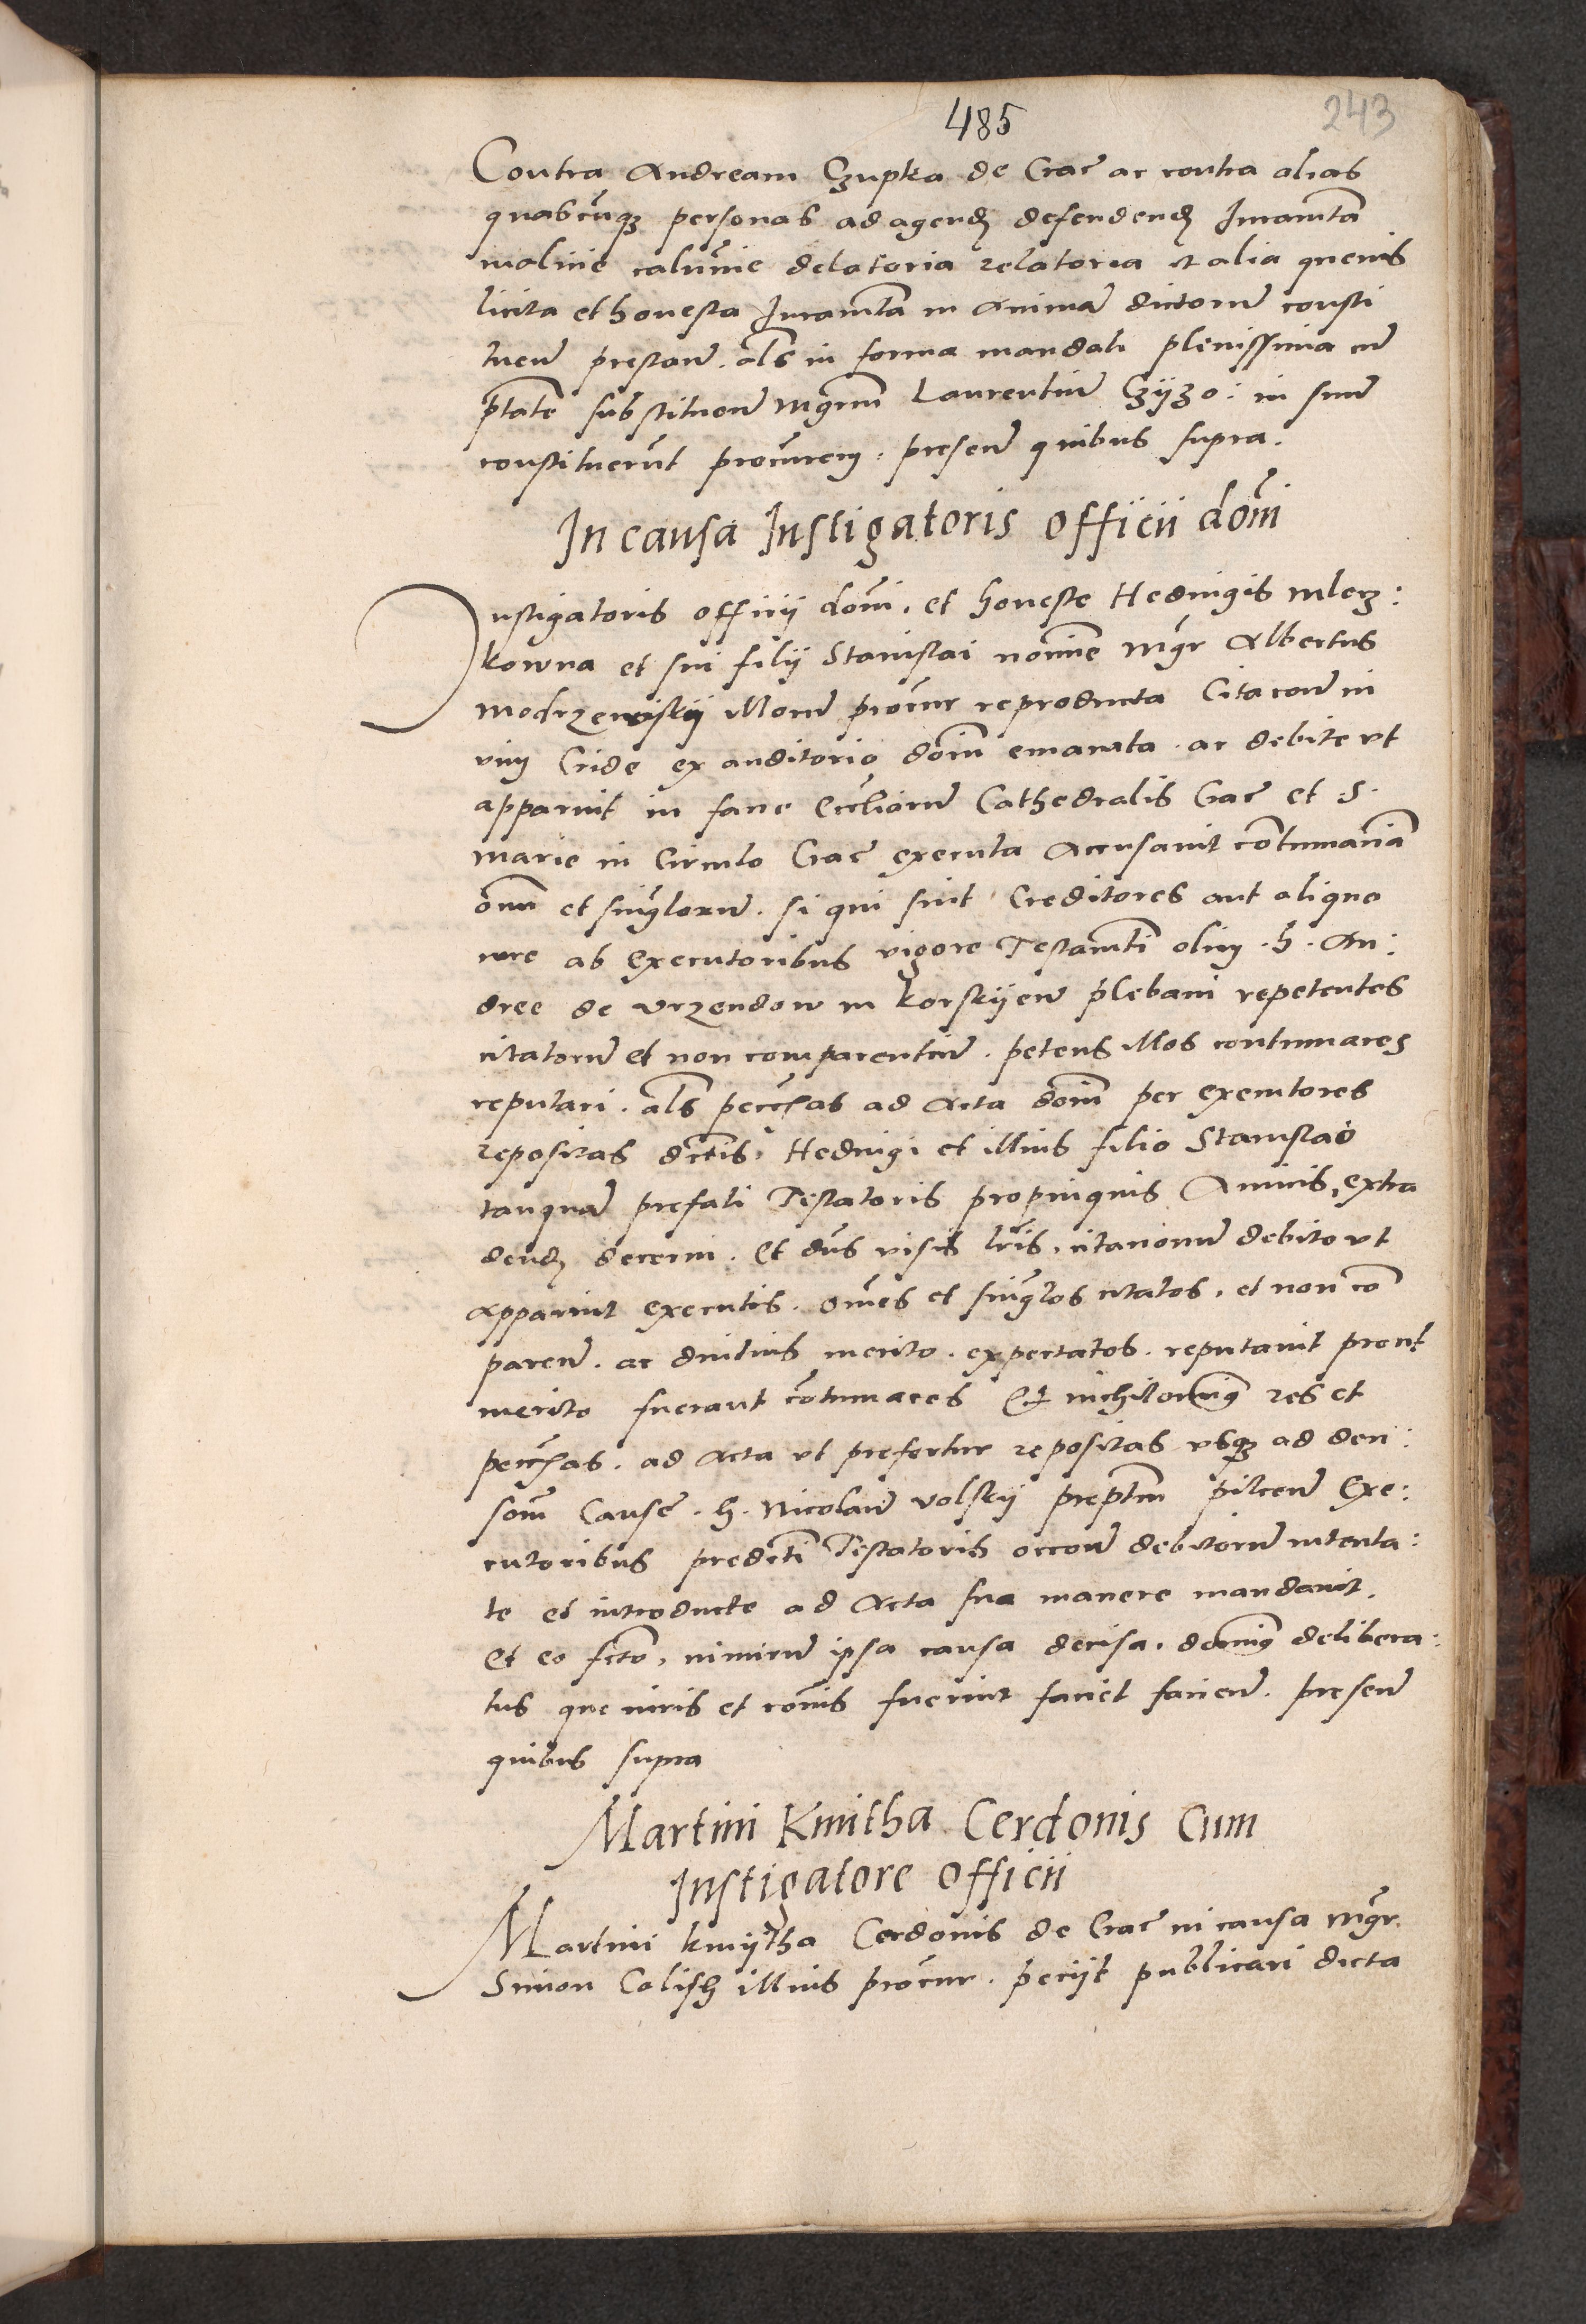 485
243
Contra Andream Czupka de Crac̄ ac contra alias
quascūqȝ personas ad agend defendend Iuramta
malicie calūnie delatoria relatoria et alia quevis
licita et honesta Iuramta in Animā dictorum consti
tuen̄ prestan̄. als in forma mandati plenissima cū
ptate substituen̄ mgrum Laurentiū Czyżo: in suū
constituerūt procurem. presen̄ quibus supra.
In causa Instigatoris officii domi
Instigatoris officii domi. et honeste Hedvigis mlecz:
kowna et sui filii Stanislai nomine mgr Albertus
modrzewskij illorum procur reproducta Citacone in
vim Cride ex auditorio domi emanata. ac debite vt
apparuit in facie Eccliarum Cathedralis Crac̄ et .S.
marie in Circulo Crac̄ executa Accusavit cōtumaciā
oīm et singlorum. si qui sint Creditores aut aliquo
iure ab Executoribus vigore Testamti olim .h. An:
dree de Vrzendow in korskijew plebani repetentes
citatorum et non comparentiū. petens illos contumaces
reputari. als peccūias ad Acta domi per executores
repositas dictis. Hedvigi et illius filio Stanislao
tanquā prefati Testatoris propinquis Amicis, extra
dend decerni. Et dūs visis lris. citacionum debite vt
apparuit executis. omēs et singlos citatos. et non cō
paren̄. ac diutius merito. expectatos. reputavit prout
merito fuerant cōtumaces Et nichilominꝰ res et
peccūias. ad Acta vt prefertur repositas vsqȝ ad deci:
som̄ Cause. h. Nicolaum volskij preptm pilcen̄ Exe:
cutoribus predicti Testatoris occon̄ debitorum intenta:
te et introducte ad Acta sua manere mandavit.
Et eo fcto, nimirum ipsa causa decisa. dominꝰ delibera:
tus que iuris et rōnis fuerint faciet facien̄. presen̄
quibus supra
Martini Kmitha Cerdonis Cum
Instigatore officii
Martini kmijtha Cerdonis de Crac̄ in causa mgr.
Simon Calish illius procur. peciit publicari dicta